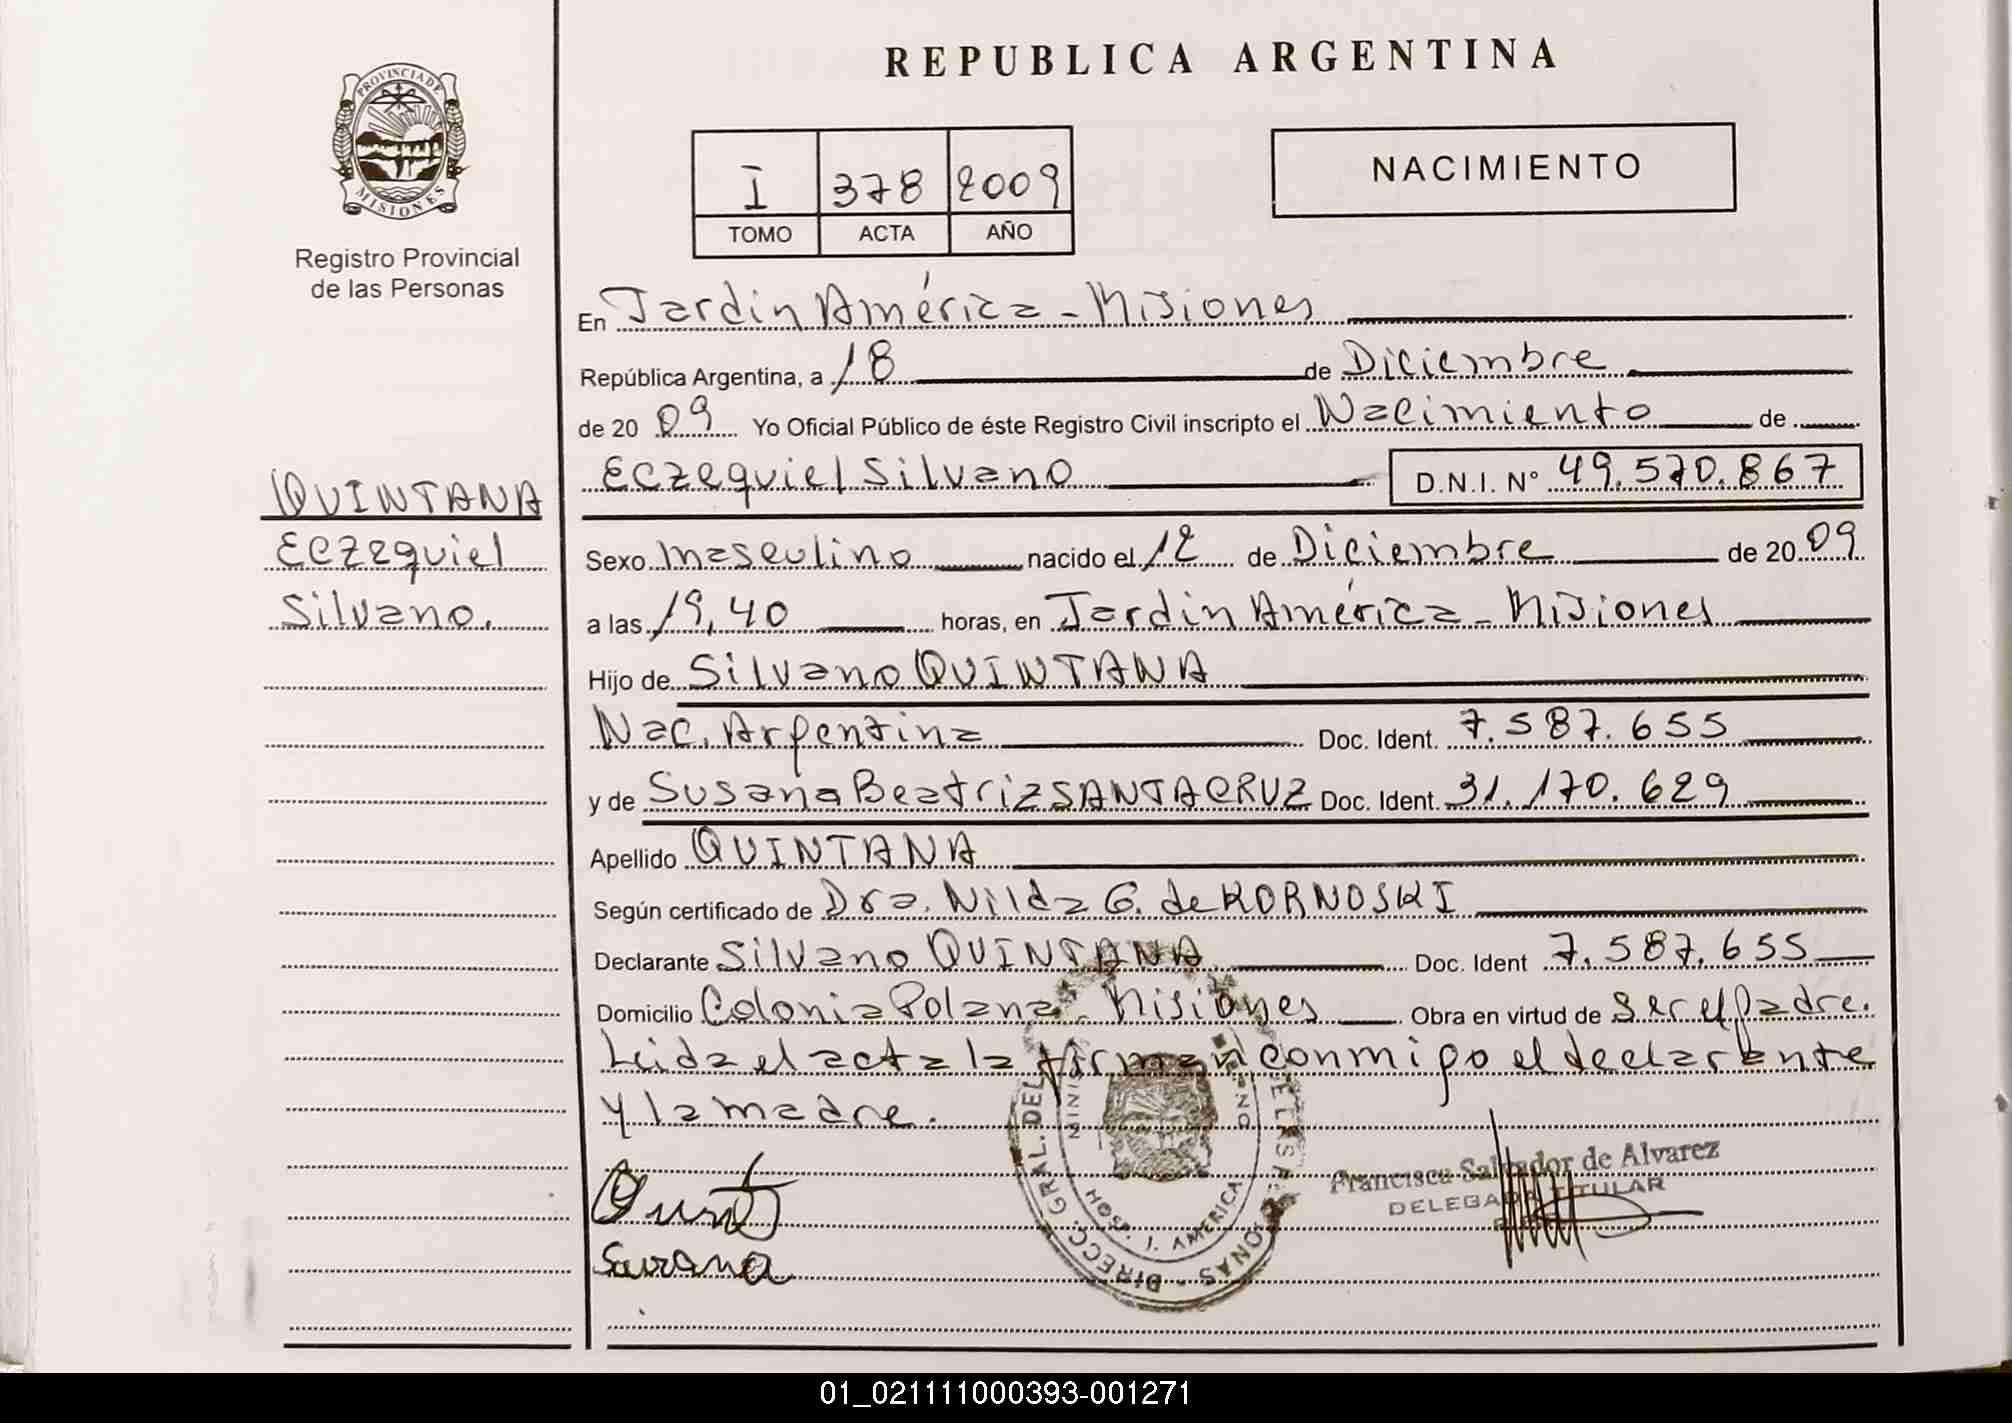 REPUBLICA ARGENTINA
PROVINCIA DE
MISIONES
Registro Provincial
de las Personas
I 378 2009
TOMO ACTA AÑO
NACIMIENTO
En Jardín América - Misiones
República Argentina, a 18 de Diciembre
de 20 09 Yo Oficial Público de éste Registro Civil inscripto el Nacimiento de
Eczequiel Silvano D.N.I. Nº 49.570.867
QUINTANA
Eczequiel
Silvano.
Sexo masculino nacido el 12 de Diciembre de 20 09
a las 19,40 horas, en Jardín América - Misiones
Hijo de Silvano QUINTANA
Nac. Argentina Doc. Ident. 7.587.655
y de Susana Beatriz SANTACRUZ Doc. Ident. 31.170.629
Apellido QUINTANA
Según certificado de Dra. Nilda G. de KORNOSKI
Declarante Silvano QUINTANA Doc. Ident 7.587.655
Domicilio Colonia Polana - Misiones Obra en virtud de ser el padre.
Leida el acta la firman conmigo el declarante
y la madre.
Francisca Salvador de Alvarez
DELEGADA TITULAR
DIRECC. GRAL. DEL
HOSP. J. AMERICA
Susana
01_021111000393-001271